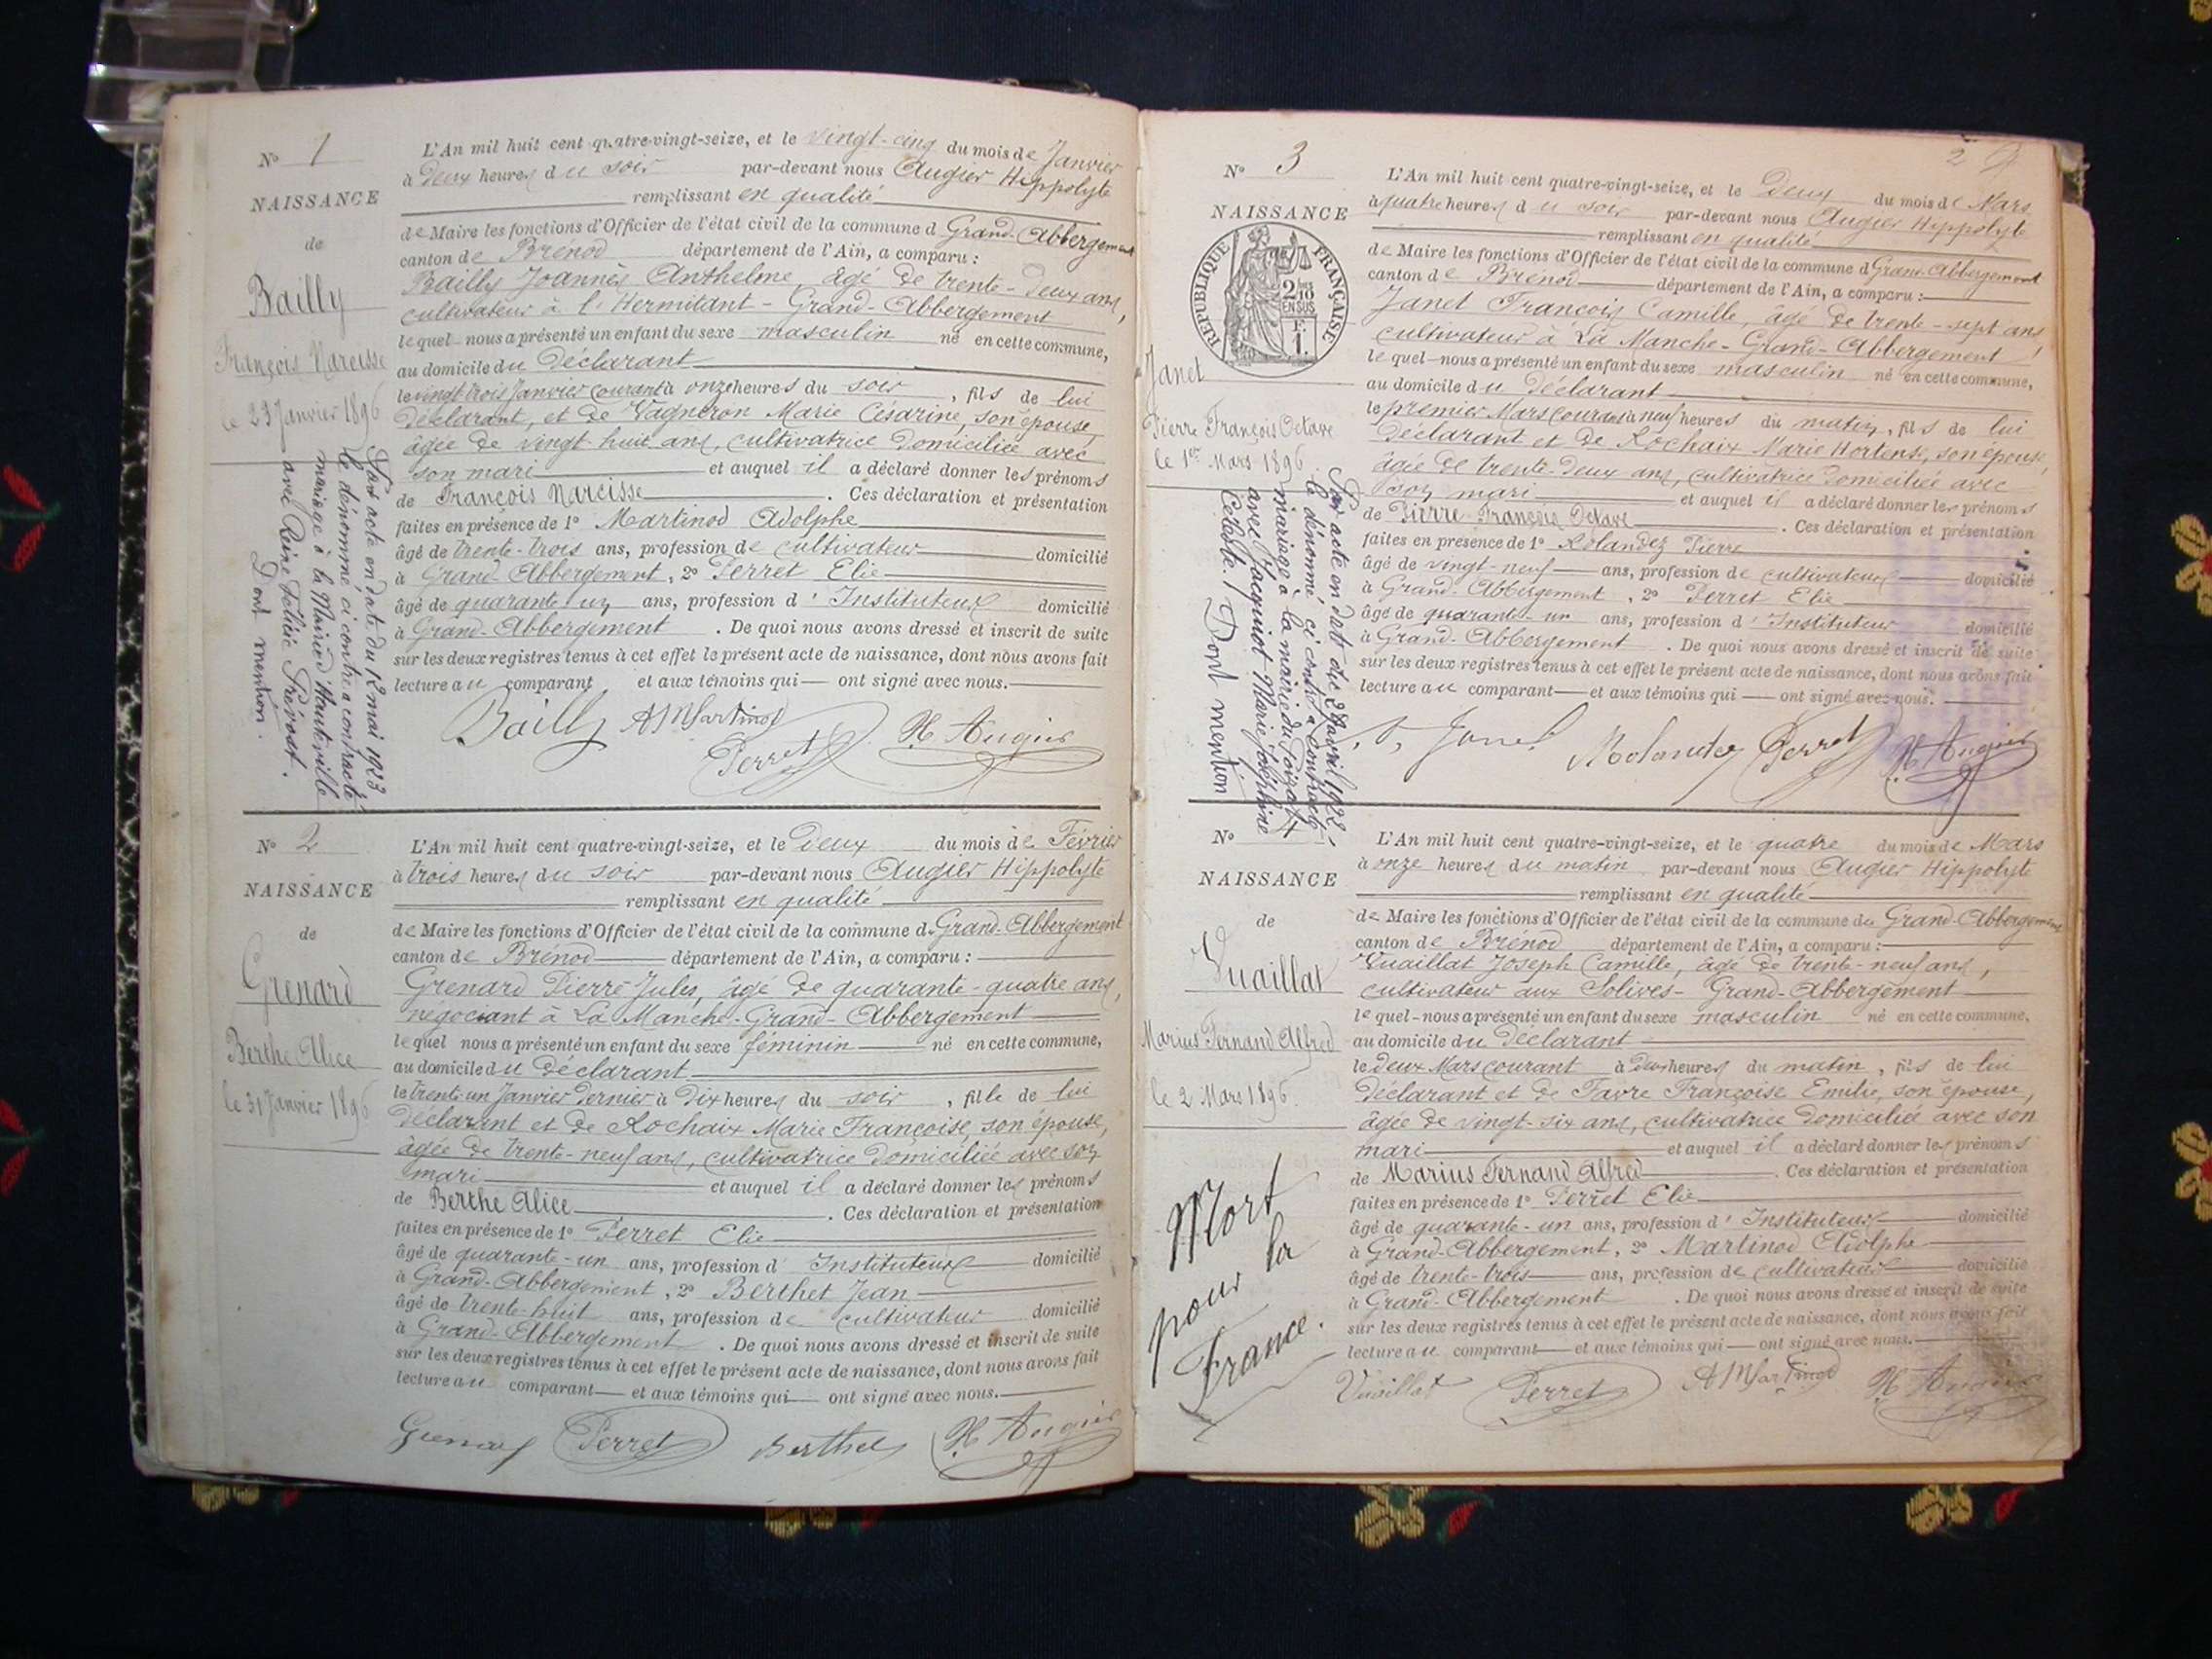 N° 1
NAISSANCE
de
Bailly
François Narcisse
le 23 Janvier 1896
Par acte en date du 12 mai 1923
le dénommé ci contre a contracté
mariage à la Mairie d'Hauteville
avec Reine Félicie Prévost.
Dont mention.
L'An mil huit cent quatre-vingt-seize, et le vingt-cinq du mois de Janvier
à deux heures du soir par-devant nous Augier Hippolyte
remplissant en qualité
de Maire les fonctions d'Officier de l'état civil de la commune d Grand-Abbergement
canton de Brénod département de l'Ain, a comparu :
Bailly Joannès Anthelme, âgé de trente-deux ans,
cultivateur à l'Hermitant - Grand-Abbergement
lequel nous a présenté un enfant du sexe masculin né en cette commune,
au domicile du déclarant
le vingt trois Janvier courant à onze heures du soir, fils de lui
déclarant, et de Vagneron Marie Césarine, son épouse,
âgée de vingt-huit ans, cultivatrice domiciliée avec
son mari et auquel il a déclaré donner les prénoms
de François Narcisse. Ces déclaration et présentation
faites en présence de 1° Martinod Adolphe
âgé de trente-trois ans, profession de cultivateur domicilié
à Grand-Abbergement, 2° Perret Elie
âgé de quarante-un ans, profession d'Instituteur domicilié
à Grand-Abbergement. De quoi nous avons dressé et inscrit de suite
sur les deux registres tenus à cet effet le présent acte de naissance, dont nous avons fait
lecture au comparant et aux témoins qui ont signé avec nous.
Bailly AMartinod Perret H. Augier
N° 2
NAISSANCE
de
Grenard
Berthe Alice
le 31 Janvier 1896
L'An mil huit cent quatre-vingt-seize, et le Deux du mois de Février
à trois heures du soir par-devant nous Augier Hippolyte
remplissant en qualité
de Maire les fonctions d'Officier de l'état civil de la commune d. Grand-Abbergement
canton de Brénod département de l'Ain, a comparu :
Grenard Pierre Jules, âgé de quarante-quatre ans,
négociant à La Manche-Grand-Abbergement
lequel nous a présenté un enfant du sexe féminin né en cette commune,
au domicile du déclarant
le trente-un Janvier dernier à dix heures du soir, fille de lui
déclarant et de Rochaix Marie Françoise, son épouse,
âgée de trente-neuf ans, cultivatrice domiciliée avec son
mari et auquel il a déclaré donner les prénoms
de Berthe Alice. Ces déclaration et présentation
faites en présence de 1° Perret Elie
âgé de quarante-un ans, profession d'Instituteur domicilié
à Grand-Abbergement, 2° Berthet Jean
âgé de trente-huit ans, profession de cultivateur domicilié
à Grand-Abbergement. De quoi nous avons dressé et inscrit de suite
sur les deux registres tenus à cet effet le présent acte de naissance, dont nous avons fait
lecture au comparant et aux témoins qui ont signé avec nous.
Grenard Perret Berthet H. Augier
2
N° 3
NAISSANCE
REPUBLIQUE FRANÇAISE
2/10
EN SUS
F.
1.
Janet
Pierre François Octave
le 1er Mars 1896
Par acte en date du 29 avril 1922
le dénommé ci contre a contracté
mariage à la mairie du
avec Jacquiot Marie Joséphine
Céleste. / Dont mention
L'An mil huit cent quatre-vingt-seize, et le Deux du mois de Mars
à quatre heures du soir par-devant nous Augier Hippolyte
remplissant en qualité
de Maire les fonctions d'Officier de l'état civil de la commune d Grand-Abbergement
canton de Brénod département de l'Ain, a comparu :
Janet François Camille, âgé de trente-sept ans,
cultivateur à La Manche-Grand-Abbergement
lequel nous a présenté un enfant du sexe masculin né en cette commune,
au domicile du déclarant
le premier Mars courant à neuf heures du matin, fils de lui
déclarant et de Rochaix Marie Hortense, son épouse,
âgée de trente-deux ans, cultivatrice domiciliée avec
son mari et auquel il a déclaré donner les prénoms
de Pierre François Octave. Ces déclaration et présentation
faites en présence de 1° Rolandez Pierre
âgé de vingt-neuf ans, profession de cultivateur domicilié
à Grand-Abbergement, 2° Perret Elie
âgé de quarante-un ans, profession d'Instituteur domicilié
à Grand-Abbergement. De quoi nous avons dressé et inscrit de suite
sur les deux registres tenus à cet effet le présent acte de naissance, dont nous avons fait
lecture au comparant et aux témoins qui ont signé avec nous.
Janet Rolandez Perret H. Augier
N°
NAISSANCE
de
Vuaillat
Marius Fernand Alfred
le 2 Mars 1896.
Mort
pour la
France.
L'An mil huit cent quatre-vingt-seize, et le quatre du mois de Mars
à onze heures du matin par-devant nous Augier Hippolyte
remplissant en qualité
de Maire les fonctions d'Officier de l'état civil de la commune de Grand-Abbergement
canton de Brénod département de l'Ain, a comparu :
Vuaillat Joseph Camille, âgé de trente-neuf ans,
cultivateur aux Solives-Grand-Abbergement
lequel nous a présenté un enfant du sexe masculin né en cette commune,
au domicile du déclarant
le deux Mars courant à deux heures du matin, fils de lui
déclarant et de Favre Françoise Emilie, son épouse,
âgée de vingt-six ans, cultivatrice domiciliée avec son
mari et auquel il a déclaré donner les prénoms
de Marius Fernand Alfred. Ces déclaration et présentation
faites en présence de 1° Perret Elie
âgé de quarante-un ans, profession d'Instituteur domicilié
à Grand-Abbergement, 2° Martinod Adolphe
âgé de trente-trois ans, profession de cultivateur domicilié
à Grand-Abbergement. De quoi nous avons dressé et inscrit de suite
sur les deux registres tenus à cet effet le présent acte de naissance, dont nous avons fait
lecture au comparant et aux témoins qui ont signé avec nous.
Vuaillat Perret AMartinod H. Augier